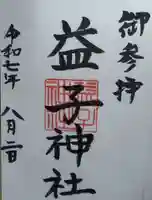 御参拝
益子神社
令和七年
八月二日